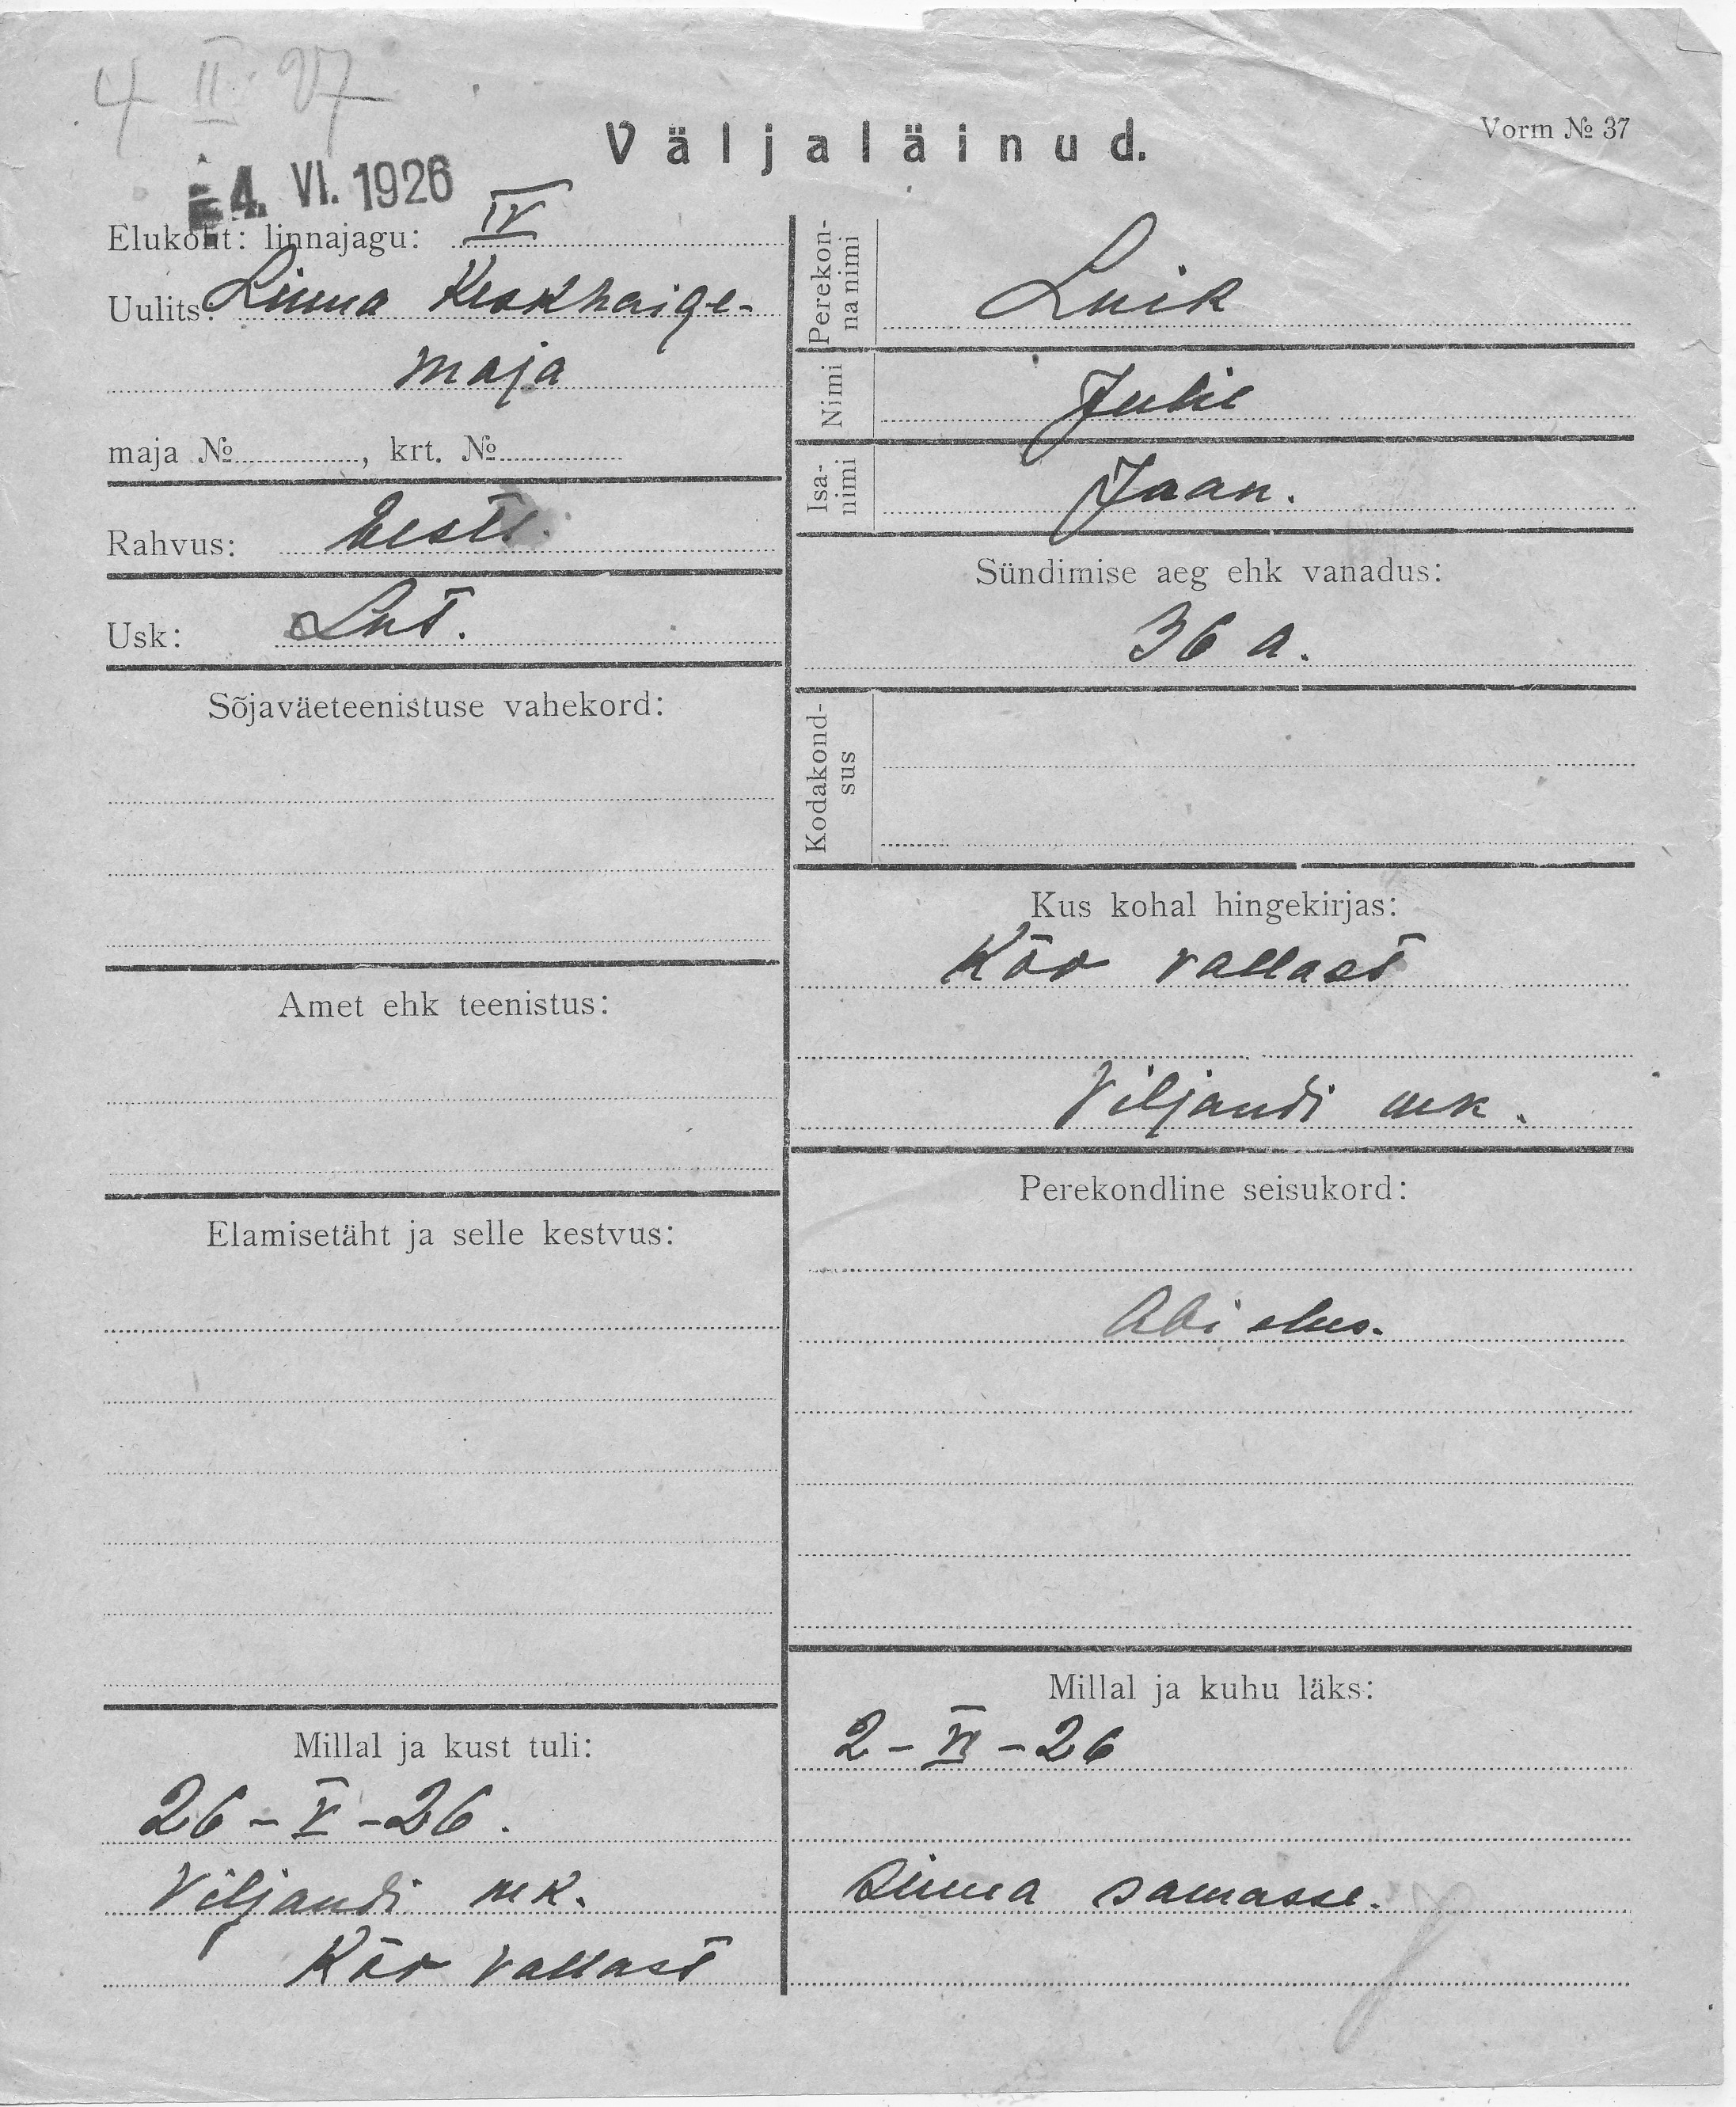 4 II 27
Väljaläinud.
Vorm № 37
4. VI. 1926
Elukoht: linnajagu: IV
Uulits: Linna Keskhaige-
maja
maja № , krt. №
Rahvus: Eesti.
Usk: Lut.
Sõjaväeteenistuse vahekord:
Amet ehk teenistus:
Elamisetäht ja selle kestvus:
Millal ja kust tuli:
26-V-26.
Viljandi mk.
Kõo vallast
Perekon-
na nimi
Luik
Nimi
Julie
Isa-
nimi
Jaan.
Sündimise aeg ehk vanadus:
36 a.
Kodakond-
sus
Kus kohal hingekirjas:
Kõo vallast
Viljandi mk.
Perekondline seisukord:
Abielus.
Millal ja kuhu läks:
2-VI-26
Sinna samasse.